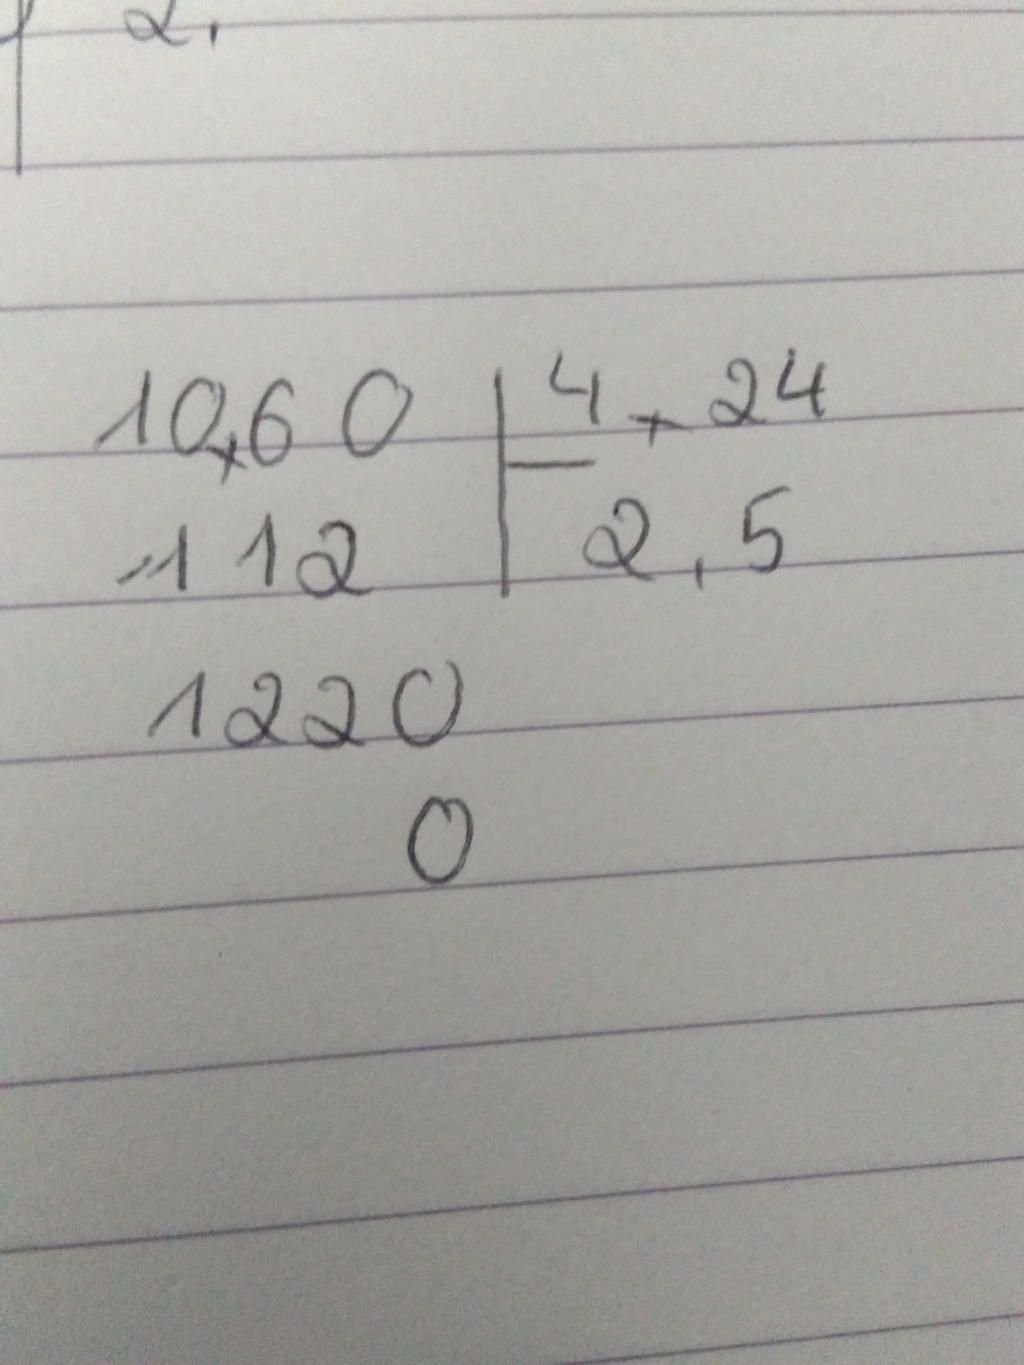 2.
10,60 4,24
-112 2,5
1220
0